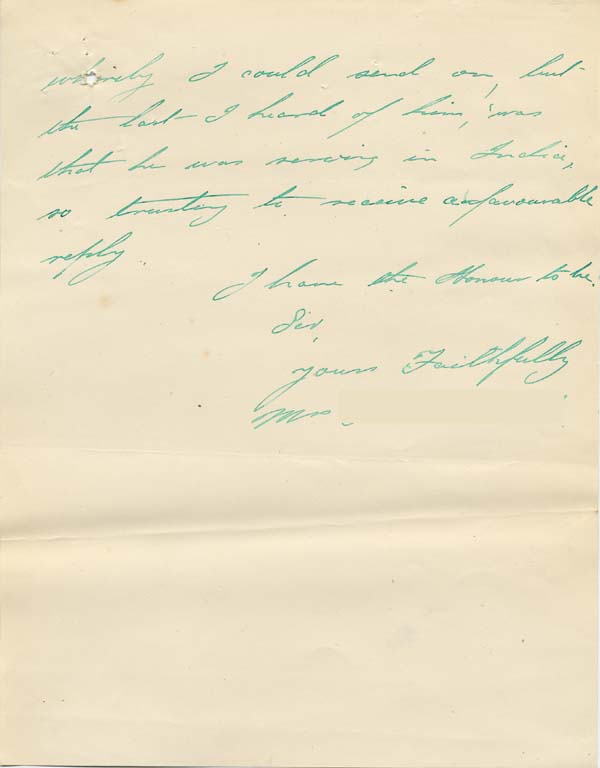 whereby I could send on, but
the last I heard of him, was
that he was serving in India,
so trusting to receive a favourable
reply
I have the Honour to be.
Sir,
yours Faithfully
Mrs